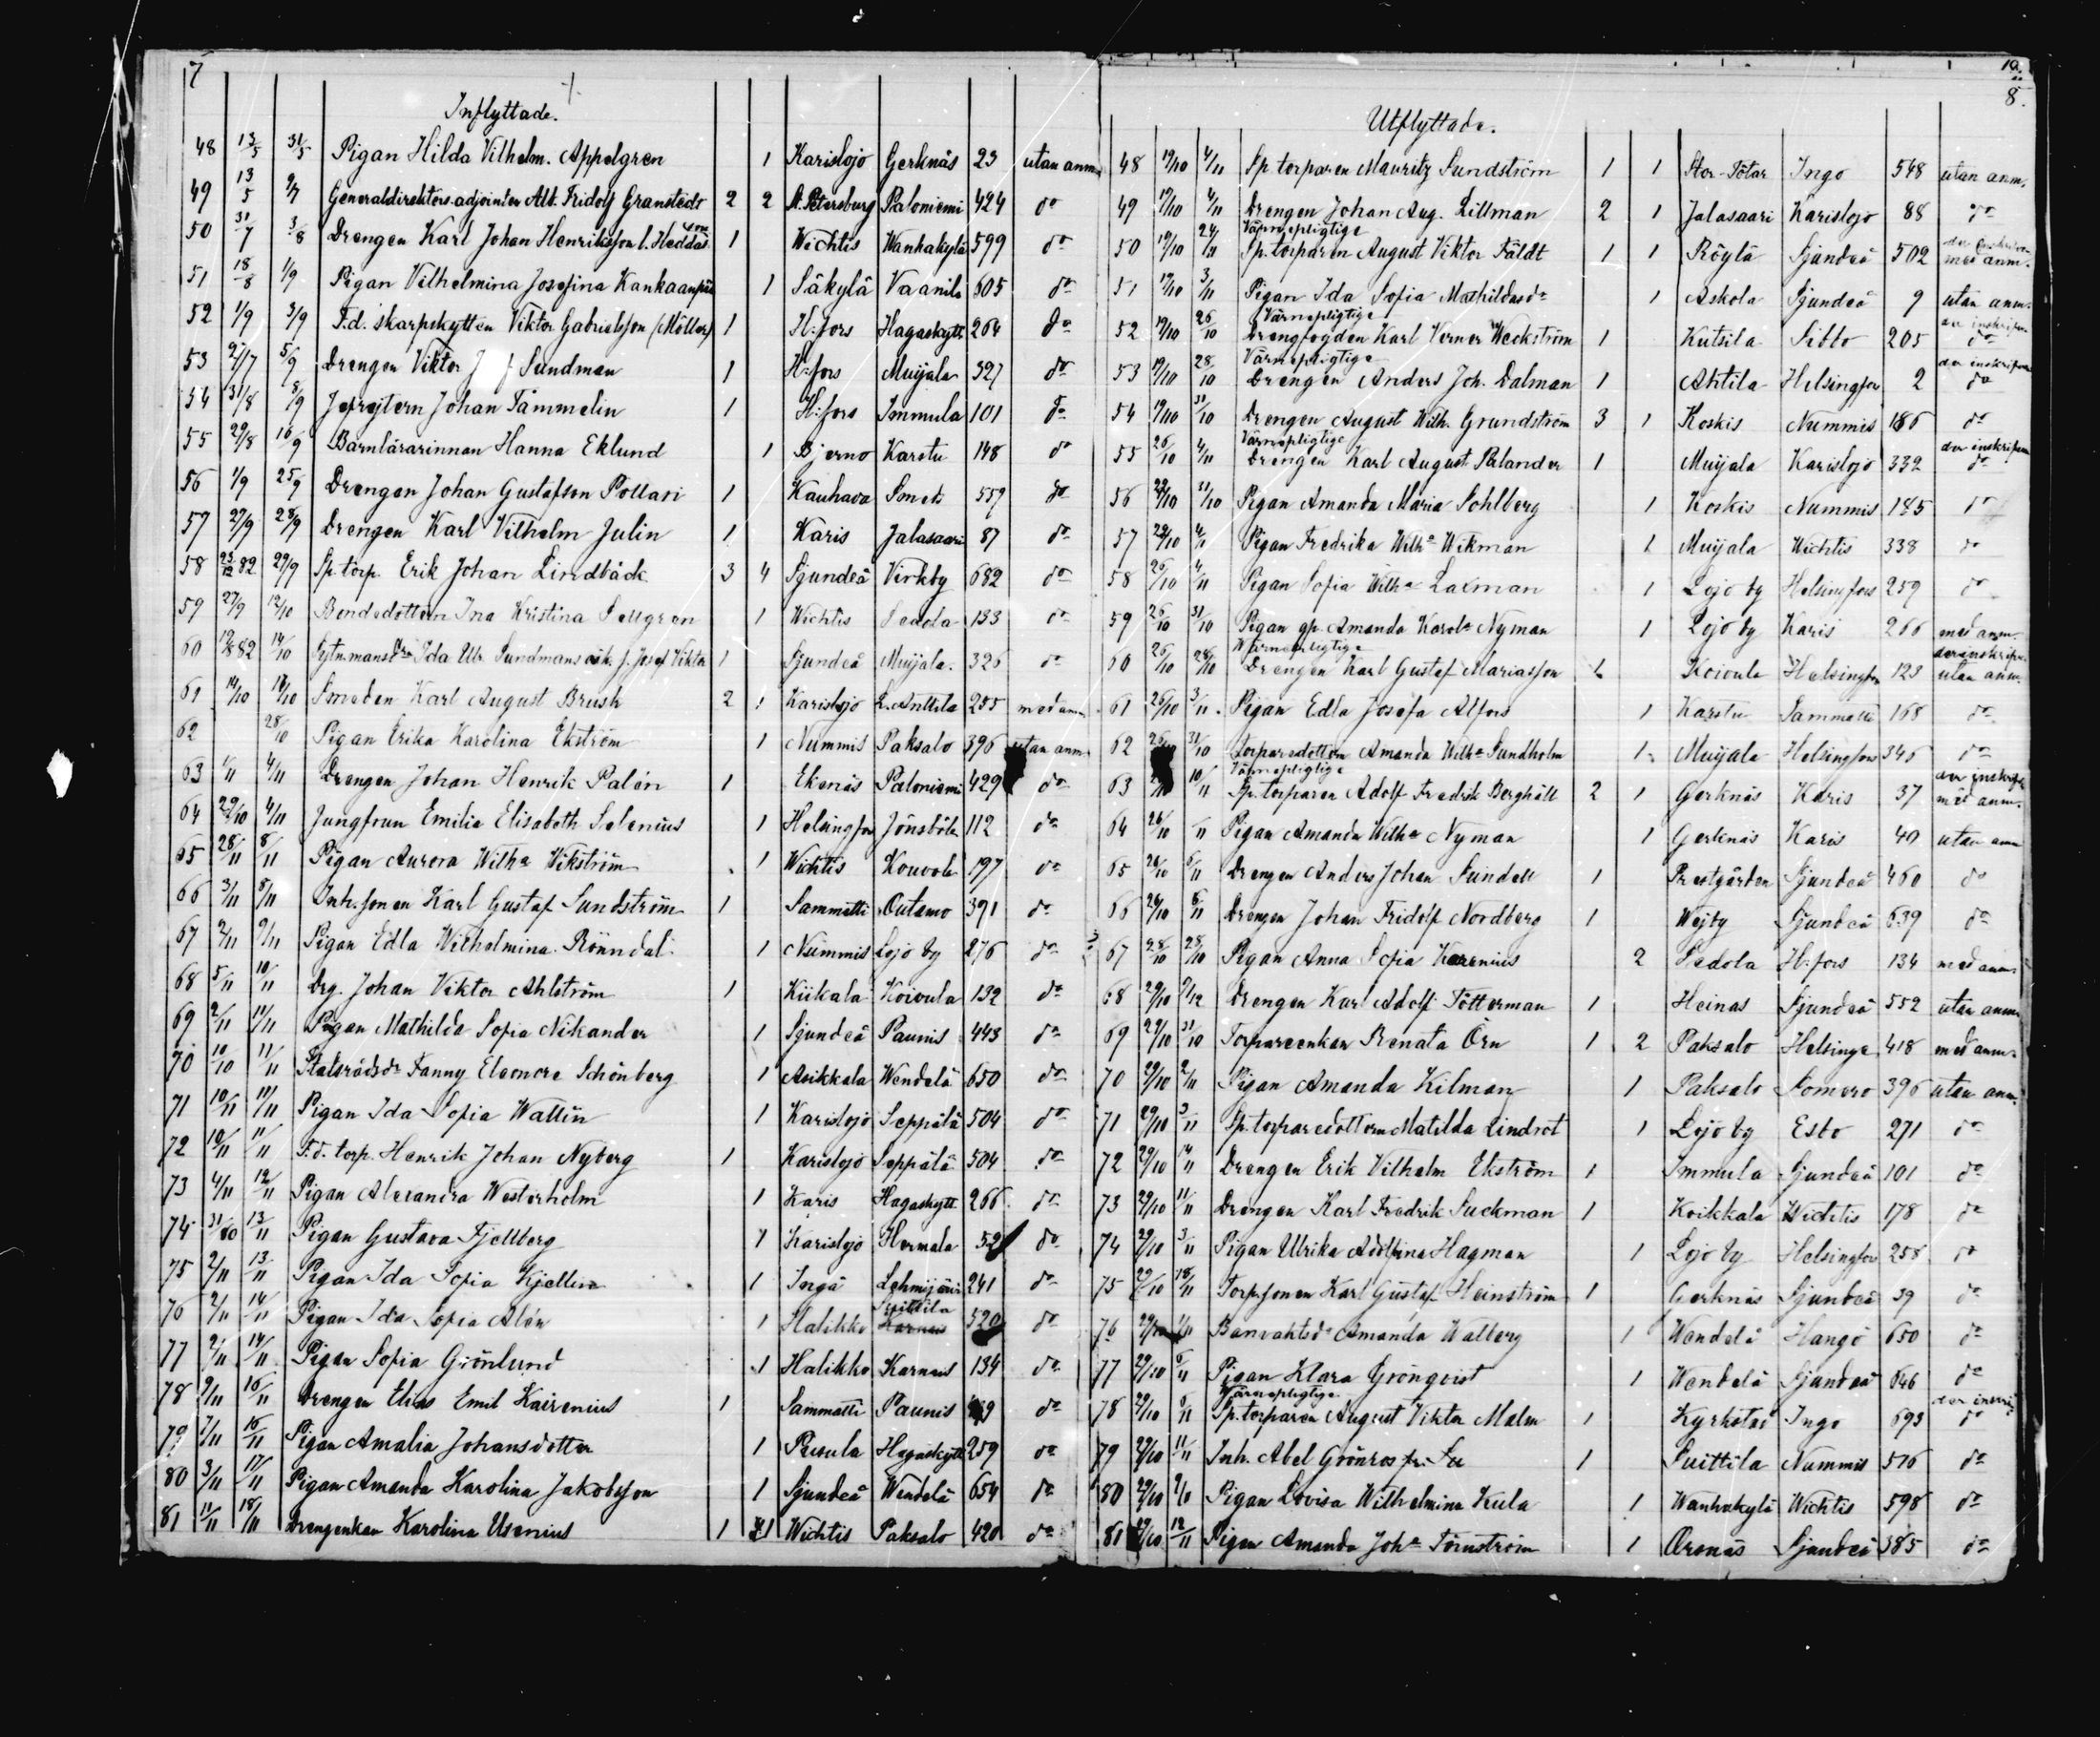 7
Inflyttade.
48 13/5 31/5 Pigan Hilda Vilhelm. Appelgren 1 Karislojo Gerknäs 23 utan anm.
49 13/5 9/7 Generaldirektors adjointen Alb. Fridolf Granstedt 2 2 St. Petersburg Paloniemi 424 do
50 31/7 3/8 Drengen Karl Johan Henriksson l. Heddas son 1 Wichtis Wanhakylä 599 do
51 18/8 1/9 Pigan Vilhelmina Josefina Kankaanpää 1 Säkylä Vaanila 605 do
52 1/9 3/9 F.d. skarpskytten Viktor Gabrielsson (Möller) 1 H:fors Hagaskytt 264 do
53 27/7 5/9 Drengen Viktor J f Sundman 1 H:fors Muijala 327 do
54 31/8 8/9 Jefrejtern Johan Tammelin 1 H:fors Immula 101 do
55 29/8 16/9 Barnlärarinnan Hanna Eklund 1 Bjerno Karstu 148 do
56 1/9 25/9 Drengen Johan Gustafson Pollari 1 Kauhava Smeds 559 do
57 27/9 28/9 Drengen Karl Vilhelm Julin 1 Karis Jalasaari 87 do
58 23/12 82 29/9 Sp.torp. Erik Johan Lindbäck 3 4 Sjundeå Virkby 682 do
59 27/9 12/10 Bondedottern Ina Kristina Sellgren 1 Wichtis Sedola 133 do
60 82 14/10 Sytn.mans Ida Ulr. Sundmans oäk. f. Josef Viktor 1 Sjundeå Muijala 326 do
61 14/10 18/10 Smeden Karl August Brush 2 1 Karislojo L. Anttila 255 med anm.
62 28/10 Pigan Erika Karolina Ekström 1 Nummis Paksalo 396 utan anm.
63 1/11 4/11 Drengen Johan Henrik Palén 1 Ekenäs Paloniemi 429 do
64 29/10 4/11 Jungfrun Emilia Elisabeth Selenius 1 Helsingfors Jönsböle 112 do
65 28/11 8/11 Pigan Aurora Wilha Wikström 1 Wichtis Kouvola 197 do
66 3/11 8/11 Inh.sonen Karl Gustaf Sundström 1 Sammatti Outamo 391 do
67 2/11 9/11 Pigan Edla Wilhelmina Rönndal 1 Nummis Lojo by 276 do
68 5/11 10/11 Drg. Johan Viktor Ahlström 1 Kiikala Koivula 132 do
69 2/11 11/11 Pigan Mathilda Sofia Nikander 1 Sjundeå Paunis 443 do
70 10/10 11/11 Statsrådsdr Fanny Eleonora Schönberg 1 Asikkala Wendelä 650 do
71 10/11 11/11 Pigan Ida Sofia Wallin 1 Karislojo Seppälä 504 do
72 10/11 11/11 F.d. torp. Henrik Johan Nyberg 1 Karislojo Seppälä 504 do
73 4/11 12/11 Pigan Alexandra Westerholm 1 Karis Hagaskytt 266 do
74 31/10 13/11 Pigan Gustava Fjellberg 1 Karislojo Hermala 52 do
75 2/11 13/11 Pigan Ida Sofia Kjellin 1 Ingå Lehmijärvi 241 do
76 2/11 14/11 Pigan Ida Sofia Alén 1 Halikko Suittila Karnais 520 do
77 2/11 14/11 Pigan Sofia Grönlund 1 Halikko Karnais 134 do
78 9/11 16/11 Drengen Elias Emil Kairenius 1 Sammatti Paunis do
79 7/11 16/11 Pigan Amalia Johansdotter 1 Pusula Hagaskytt 259 do
80 3/11 17/11 Pigan Amanda Karolina Jakobsson 1 Sjundeå Wendelä 654 do
81 11/11 18/11 Drengenkan Karolina Usenius 1 1 Wichtis Paksalo 420 do
10.
8.
Utflyttade.
48 19/10 4/11 Sp torparen Mauritz Sundström 1 1 Stor-Tötar Ingo 548 utan anm.
49 19/10 4/11 Drengen Johan Aug. Lillman 2 1 Jalasaari Karislojo 88 do
Värnepligtige
50 19/10 Sp. torparen August Viktor Fäldt 1 1 Röylä Sjundeå 502 med anm.
51 19/10 3/11 Pigan Ida Sofia Mathildasdr 1 Askola Sjundeå 9 utan anm.
Värnepligtige
52 19/10 26/10 Drengfogden Karl Verner Weckström 1 Kutsila Sibbo 205 do
Värnepligtige der inskrifven
53 19/10 28/10 Drengen Anders Joh. Dalman 1 Ahtila Helsingfors 2 do
54 19/10 31/10 Drengen August Wilh. Grundström 3 1 Koskis Nummis 186 do
Värnepligtige der inskrifven
55 26/10 4/11 Drengen Karl August Palander 1 Muijala Karislojo 332 do
56 22/10 31/10 Pigan Amanda Maria Sohlberg 1 Koskis Nummis 185 do
57 22/10 Pigan Fredrika Wilha Wikman 1 Muijala Wichtis 338 do
58 26/10 4/11 Pigan Sofia Wilha Laxman 1 Lojo by Helsingfors 259 do
59 26/10 31/10 Pigan gp. Amanda Karola Nyman 1 Lojo by Karis 266 med anm.
Wärnepligtige der inskrifven
60 26/10 28/10 Drengen Karl Gustaf Mariasson 1 Koivula Helsingfors 123 utan anm.
61 26/10 3/11 Pigan Edla Josefa Alfors 1 Karstu Sammatti 168 do
62 26/10 31/10 Torparedottern Amanda Wilha Sundholm 1 Muijala Helsingfors 346 do
Värnepligtige
63 10/11 Sp. torparen Adolf Fredrik Berghäll 2 1 Gerknäs Karis 37 med anm.
64 26/10 Pigan Amanda Wilha Nyman 1 Gerknäs Karis 40 utan anm
65 26/10 6/11 Drengen Anders Johan Sundell 1 Prestgården Sjundeå 460 do
66 26/10 6/11 Drengen Johan Fridolf Nordberg 1 Wejby Sjundeå 639 do
67 28/10 28/10 Pigan Anna Sofia Karenius 2 Sedola H:fors 134 med anm.
68 29/10 7/12 Drengen Karl Adolf Tötterman 1 Heinas Sjundeå 552 utan anm.
69 29/10 31/10 Torpareenkan Renata Örn 1 2 Paksalo Helsinge 418 med anm.
70 29/10 2/11 Pigan Amanda Kilman 1 Paksalo Somero 396 utan anm.
71 29/10 3/11 Sp. torparedottern Matilda Lindrot 1 Lojo by Esbo 271 do
72 29/10 14/11 Drengen Erik Vilhelm Ekström 1 Immula Sjundeå 101 do
73 29/10 11/11 Drengen Karl Fredrik Suckman 1 Koikkala Wichtis 178 do
74 29/10 3/11 Pigan Ulrika Adolfina Hagman 1 Lojo by Helsingfors 258 do
75 29/10 18/11 Torp.sonen Karl Gustaf Heinström 1 Gerknäs Sjundeå 39 do
76 Banvaktsdr Amanda Walberg 1 Wendelä Hangö 650 do
77 29/10 6/11 Pigan Klara Grönqvist 1 Wendelä Sjundeå 646 do
Wärnepligtige
78 29/10 Sp. torparen August Viktor Malm 1 Kyrkstad Ingo 693 do
79 29/10 11/11 Inh. Abel Grönroos 1 Suittila Nummis 516 do
80 29/10 Pigan Lovisa Wilhelmina Kula 1 Wanhakylä Wichtis 598 do
81 12/11 Pigan Amanda Joha Törnström 1 Orsnäs Sjundeå 385 do